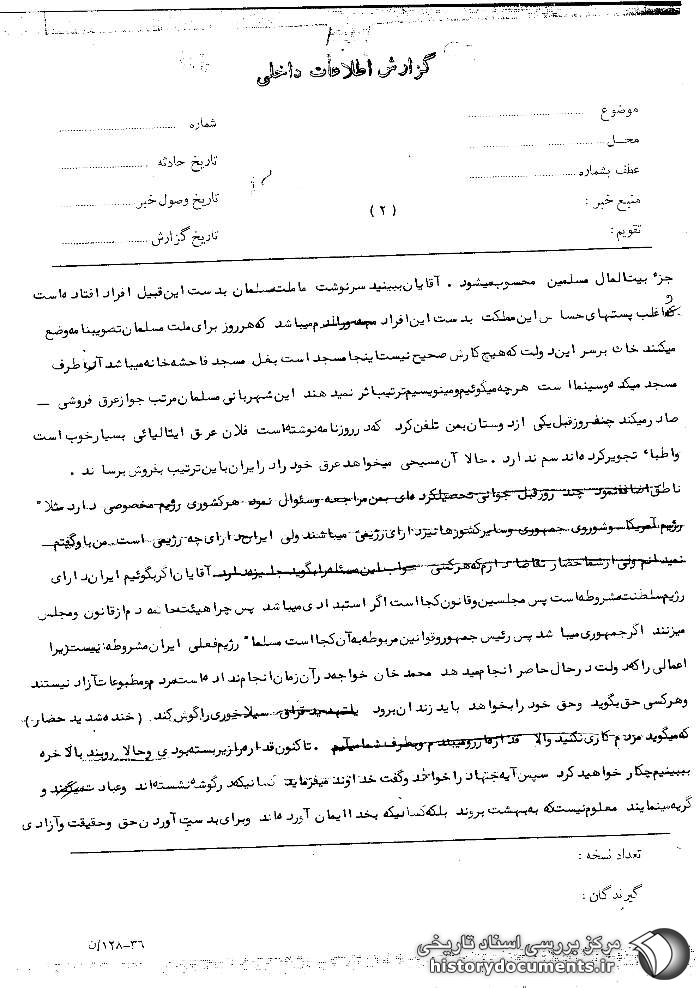 گزارش اطلاعات داخلی
موضوع
شماره
محل
تاریخ حادثه
عطف بشماره
تاریخ وصول خبر
منبع خبر :
(۲)
تقویم :
تاریخ گزارش
جزء بیت‌المال مسلمین محسوب میشود . آقایان ببینید سرنوشت ما ملت مسلمان بدست این قبیل افراد افتاده است
که اغلب پستهای حساس این مملکت بدست این افراد میباشد که هر روز برای ملت مسلمان تصویبنامه وضع
میکنند خاک برسر این دولت که هیچ کارش صحیح نیست اینجا مسجد است بغل مسجد فاحشه خانه میباشد آن طرف
مسجد میکده و سینما است هرچه میگوئیم و مینویسیم ترتیب اثر نمیدهند این شهربانی مسلمان مرتب جواز عرق فروشی —
صادر میکند چند روز قبل یکی از دوستان بمن تلفن کرد که در روزنامه نوشته است فلان عرق ایتالیائی بسیار خوب است
و اطباء تجویز کرده‌اند سم ندارد . حالا آن مسیحی میخواهد عرق خود را در ایران باین ترتیب بفروش برساند .
ناطق اضافه نمود چند روز قبل جوانی تحصیلکرده‌ای بمن مراجعه و سئوال نمود هر کشوری رژیم مخصوصی دارد مثلا"
رژیم آمریکا و شوروی جمهوری و سایر کشورها نیز دارای رژیمی میباشند ولی ایران دارای چه رژیمی است من باو گفتم
نمیدانم ولی از شما حضار تقاضا دارم که هرکسی جواب این مسئله را بگوید جایزه دارد آقایان اگر بگوئیم ایران دارای
رژیم سلطنت مشروطه است پس مجلسین و قانون کجا است اگر استبدادی میباشد پس چرا هیئت حاکمه دم از قانون و مجلس
میزنند اگر جمهوری میباشد پس رئیس جمهور و قوانین مربوطه به آن کجا است مسلما" رژیم فعلی ایران مشروطه نیست زیرا
اعمالی را که دولت در حال حاضر انجام میدهد محمد خان خواجه در آن زمان انجام نداده است مردم و مطبوعات آزاد نیستند
و هرکسی حق بگوید و حق خود را بخواهد باید زندان برود را گوش کند ( خنده شدید حضار )
که میگوید مردم کاری نکنید والا قداره را رو میبندم و بطرف شما میآیم . تا کنون قداره از زیر بسته بودی و حالا رو بند بالاخره
ببینیم چکار خواهید کرد سپس آیه جهاد را خواند و گفت خداوند میفرماید کسانیکه در گوشه نشسته‌اند و عبادت میکنند و
گریه مینمایند معلوم نیست که به بهشت بروند بلکه کسانیکه بخدا ایمان آورده‌اند و برای بدست آوردن حق و حقیقت و آزادی
تعداد نسخه :
گیرندگان :
۳۶-۱۲۸/ن
مرکز بررسی اسناد تاریخی
historydocuments.ir